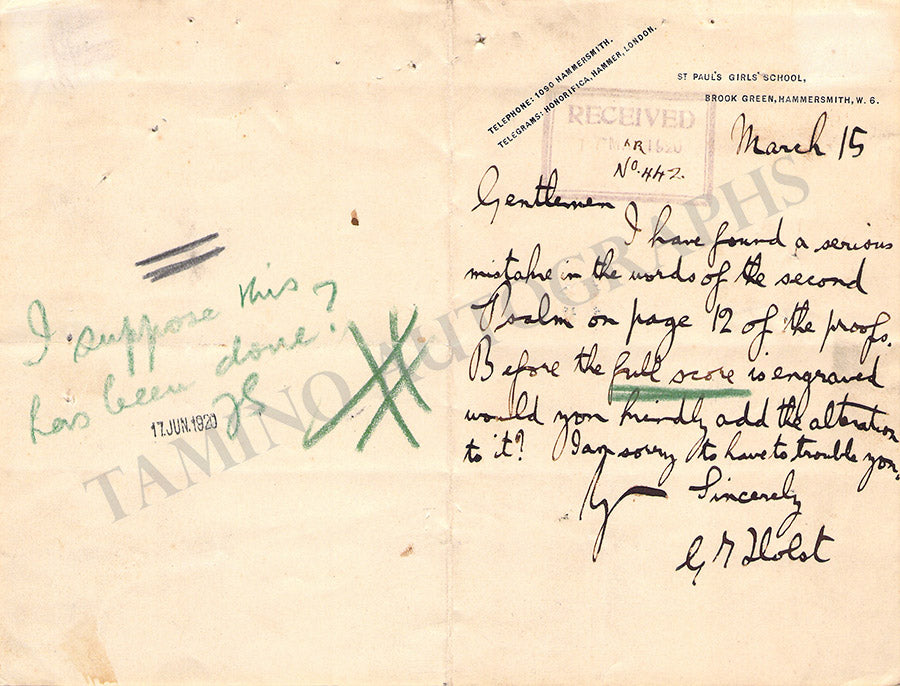 I suppose this
has been done?
17. JUN. 1920
TELEPHONE: 1090 HAMMERSMITH.
TELEGRAMS: HONORIFICA, HAMMER, LONDON.
ST PAUL'S GIRLS' SCHOOL,
BROOK GREEN, HAMMERSMITH, W. 6.
RECEIVED
MAR 1920
No. 442.
March 15
Gentlemen
I have found a serious
mistake in the words of the second
Psalm on page 12 of the proofs.
Before the full score is engraved
would you kindly add the alteration
to it? I am sorry to have to trouble you.
Yrs Sincerely
G T Holst
TAMINO AUTOGRAPHS